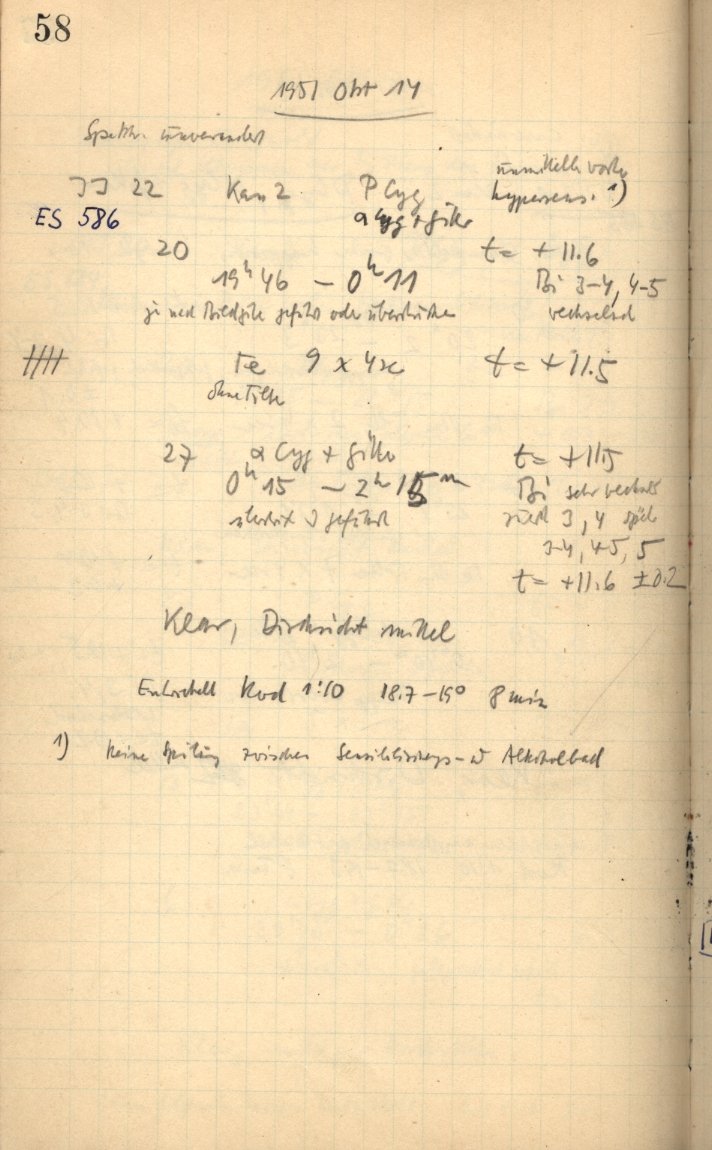 58
1951 Okt 14
Spektr. unverändert
JJ 22 Kam 2 P Cyg unmittelb vorher
hypersens. 1)
ES 586 α Cyg + Gitter
20 t = + 11.6
19h 46 – 0h 11 Bi 3–4, 4–5
je nach Bildgüte geführt oder wechselnd
Fe 9 x 4x t = + 11.5
ohne Filter
27 α Cyg + Gitter t = + 11.5
0h 15 – 2h 15m Bi sehr wechs
geführt zuerst 3, 4 spät
3–4, 4–5, 5
t = +11.6 ±0.2
Klar, Durchsicht mittel
Entwickelt Rod 1:10 18.7 – 19° 8 min
1) Keine Spülung zwischen Sensibilisierungs- u Alkoholbad